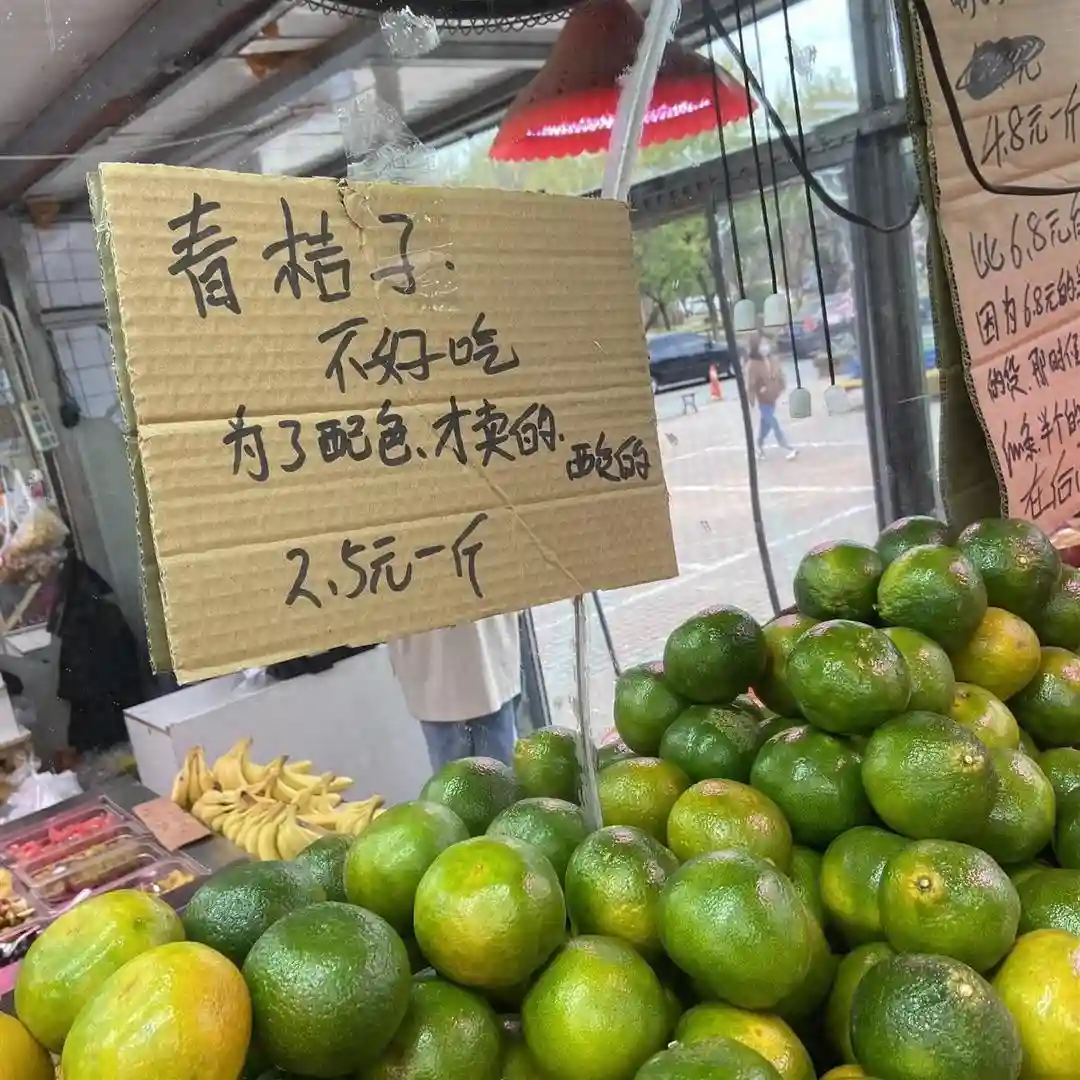 青桔子.
不好吃
为了配色、才卖的.
酸的
2.5元一斤
元
4.8元一斤
比6.8元
因为6.8元的
的货.那时
半个的
在后